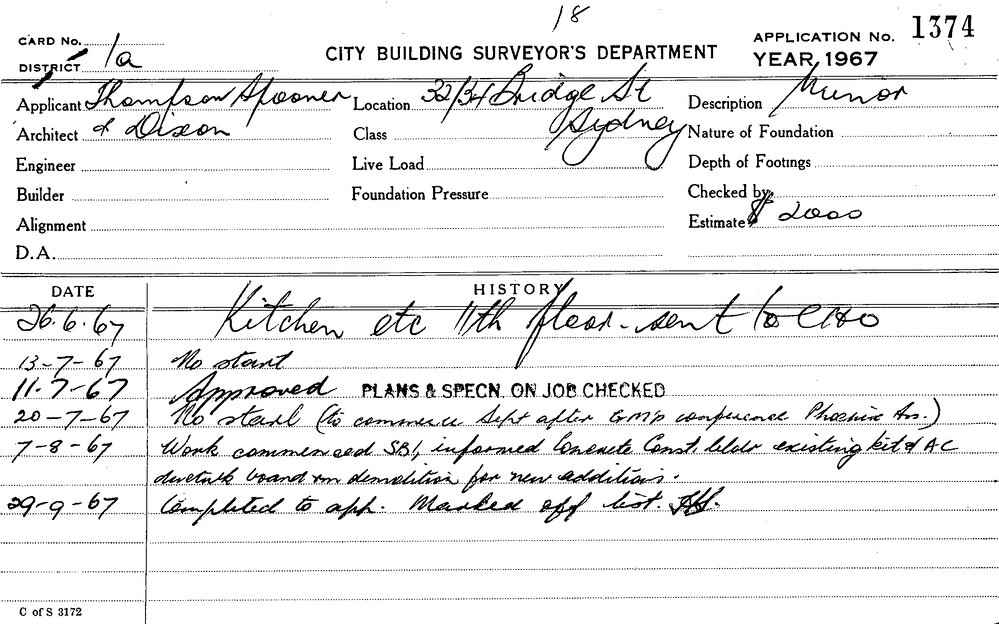 18
CARD No. 1a
DISTRICT
CITY BUILDING SURVEYOR'S DEPARTMENT
APPLICATION No. 1374
YEAR 1967
Applicant Thompson Spooner Location 32/34 Bridge St Description Minor
Architect & Dixon Class Sydney Nature of Foundation
Engineer Live Load Depth of Footings
Builder Foundation Pressure Checked by
Alignment Estimate $ 2000
D.A.
DATE HISTORY
26.6.67 Kitchen etc 11th floor - sent to CHO
13-7-67 No start
11.7-67 Approved PLANS & SPECN. ON JOB CHECKED
20-7-67 No start (to commence Sept after conference Phoenix)
7-8-67 Work commenced informed Concrete Const bldr existing kit & AC
board demolition for new additions.
29-9-67 Completed to app. Marked off list.
C of S 3172